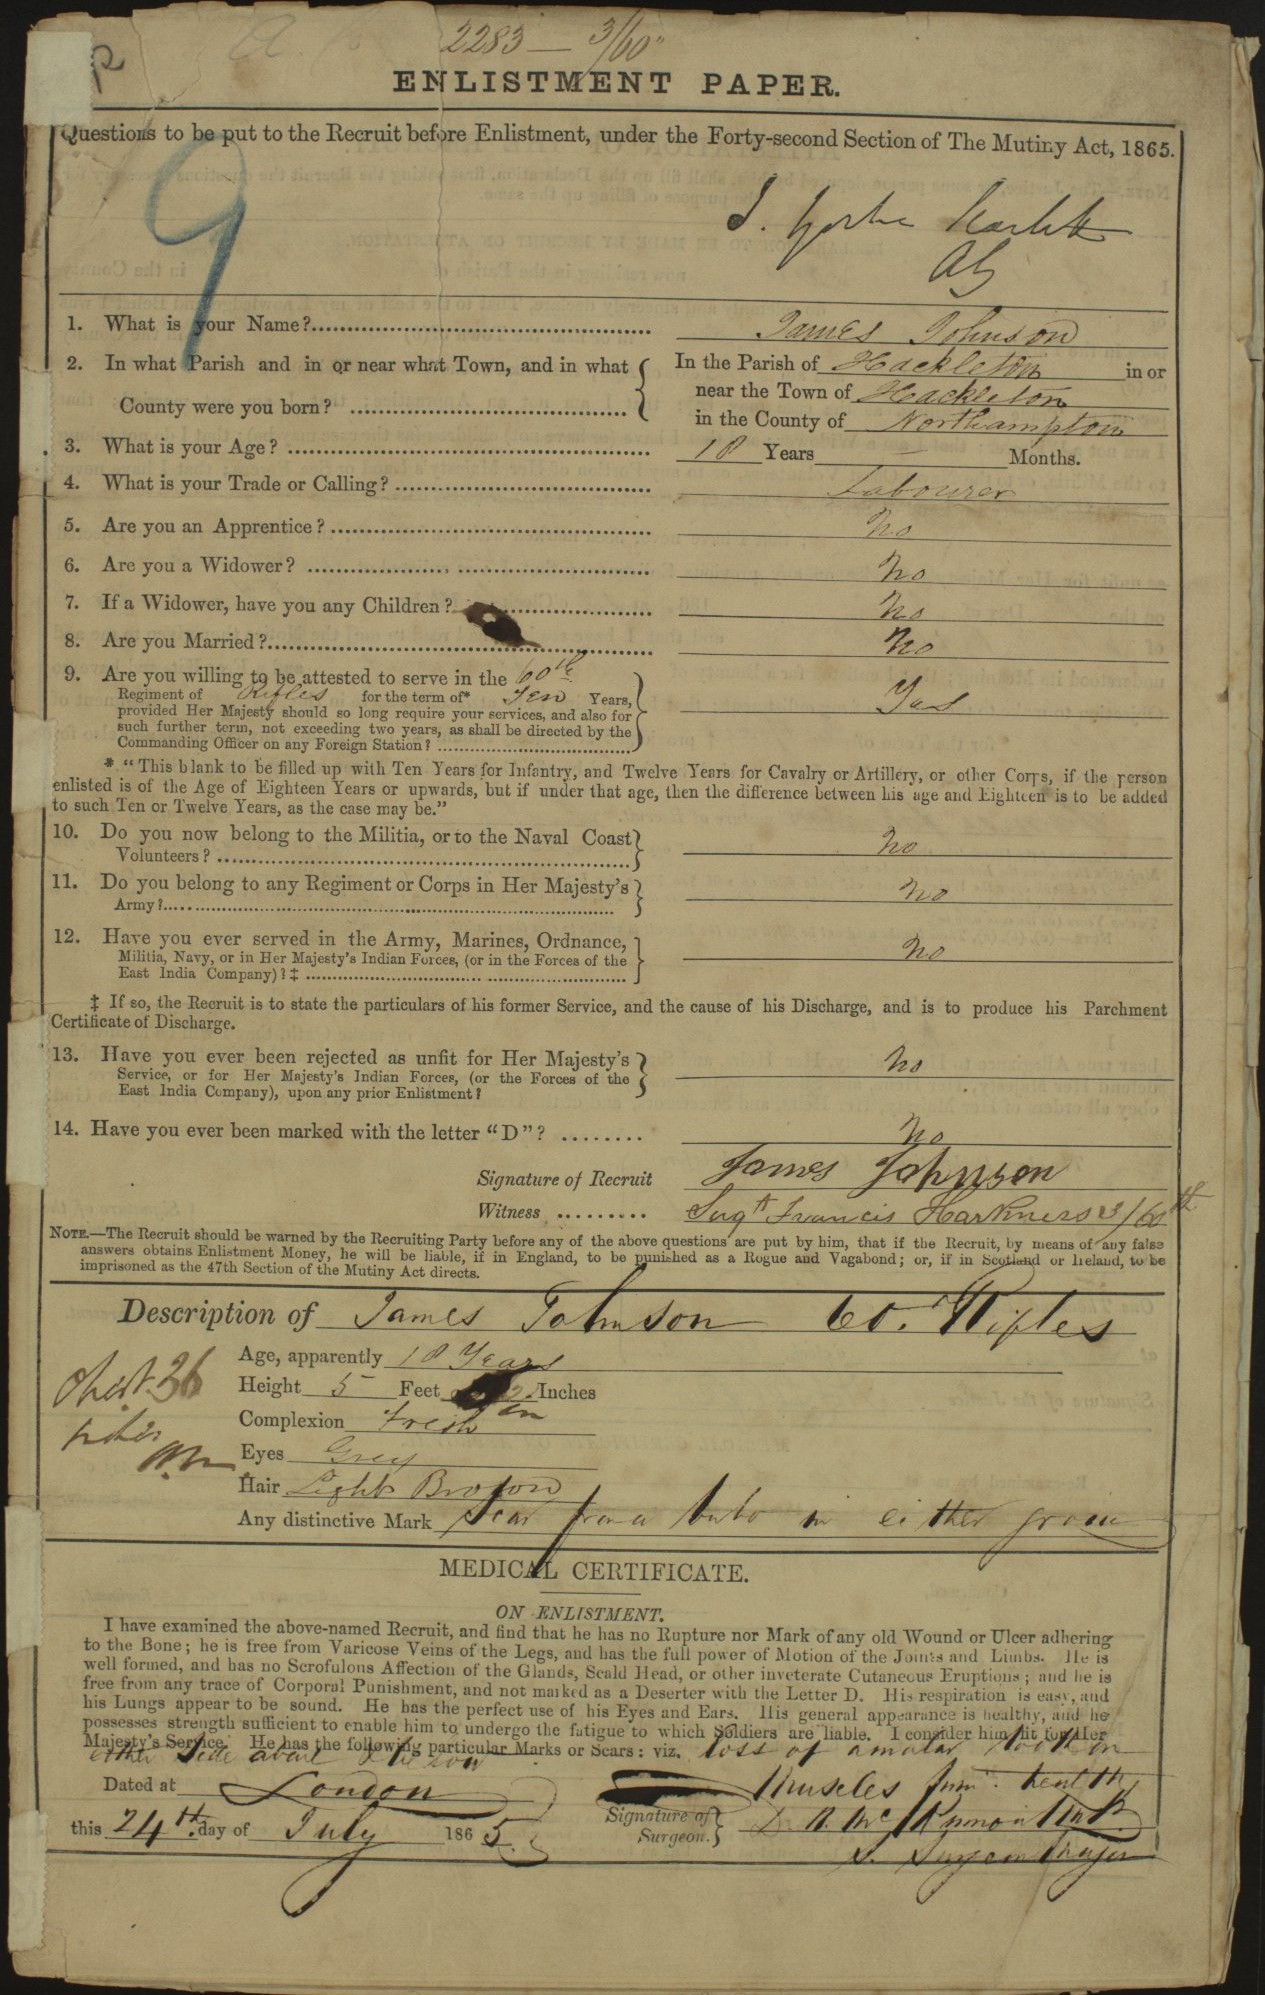 2283 — 3/60"
ENLISTMENT PAPER.
Questions to be put to the Recruit before Enlistment, under the Forty-second Section of The Mutiny Act, 1865.
9
1. What is your Name? James Johnson
2. In what Parish and in or near what Town, and in what County were you born?
In the Parish of Hackleton in or
near the Town of Hackleton
in the County of Northampton
3. What is your Age? 18 Years — Months.
4. What is your Trade or Calling? Labourer
5. Are you an Apprentice? No
6. Are you a Widower? No
7. If a Widower, have you any Children? No
8. Are you Married? No
9. Are you willing to be attested to serve in the 60th
Regiment of Rifles for the term of* Ten Years,
provided Her Majesty should so long require your services, and also for
such further term, not exceeding two years, as shall be directed by the
Commanding Officer on any Foreign Station? Yes
* "This blank to be filled up with Ten Years for Infantry, and Twelve Years for Cavalry or Artillery, or other Corps, if the person
enlisted is of the Age of Eighteen Years or upwards, but if under that age, then the difference between his age and Eighteen is to be added
to such Ten or Twelve Years, as the case may be."
10. Do you now belong to the Militia, or to the Naval Coast
Volunteers? No
11. Do you belong to any Regiment or Corps in Her Majesty's
Army? No
12. Have you ever served in the Army, Marines, Ordnance,
Militia, Navy, or in Her Majesty's Indian Forces, (or in the Forces of the
East India Company)? ‡ No
‡ If so, the Recruit is to state the particulars of his former Service, and the cause of his Discharge, and is to produce his Parchment
Certificate of Discharge.
13. Have you ever been rejected as unfit for Her Majesty's
Service, or for Her Majesty's Indian Forces, (or the Forces of the
East India Company), upon any prior Enlistment? No
14. Have you ever been marked with the letter "D"? No
Signature of Recruit James Johnson
Witness Sergt Francis Harkness 3/60th
NOTE.—The Recruit should be warned by the Recruiting Party before any of the above questions are put by him, that if the Recruit, by means of any false
answers obtains Enlistment Money, he will be liable, if in England, to be punished as a Rogue and Vagabond; or, if in Scotland or Ireland, to be
imprisoned as the 47th Section of the Mutiny Act directs.
Description of James Johnson 60. Rifles
Age, apparently 18 Years
Chest 36
Height 5 Feet Inches
Complexion Fresh
Eyes Grey
Hair Light Brown
Any distinctive Mark Scar from a bubo in either groin
MEDICAL CERTIFICATE.
ON ENLISTMENT.
I have examined the above-named Recruit, and find that he has no Rupture nor Mark of any old Wound or Ulcer adhering
to the Bone; he is free from Varicose Veins of the Legs, and has the full power of Motion of the Joints and Limbs. He is
well formed, and has no Scrofulous Affection of the Glands, Scald Head, or other inveterate Cutaneous Eruptions; and he is
free from any trace of Corporal Punishment, and not marked as a Deserter with the Letter D. His respiration is easy, and
his Lungs appear to be sound. He has the perfect use of his Eyes and Ears. His general appearance is healthy, and he
possesses strength sufficient to enable him to undergo the fatigue to which Soldiers are liable. I consider him fit for Her
Majesty's Service. He has the following particular Marks or Scars: viz. loss of a molar tooth on
either side above & below
Muscles
Dated at London
Signature of Surgeon.
this 24th day of July 1865
Surgeon Major